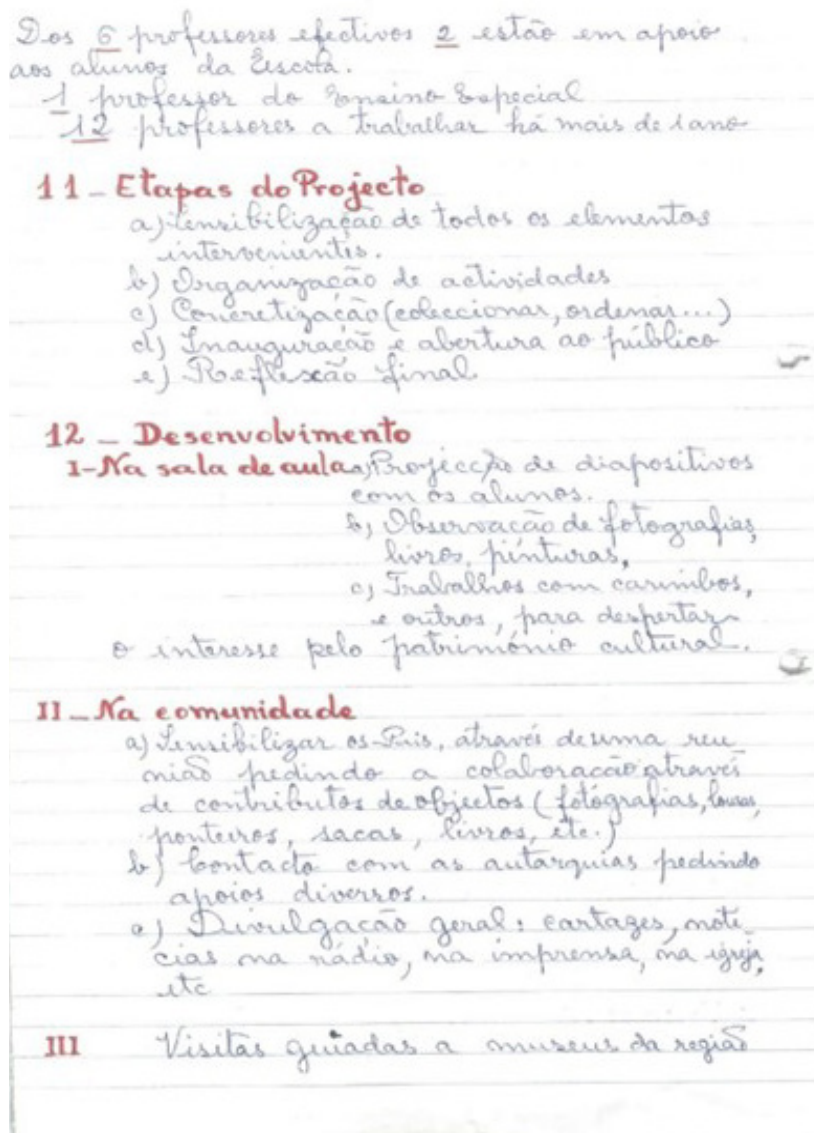 Dos 6 professores efectivos 2 estão em apoio
aos alunos da Escola.
1 professor do Ensino Especial
12 professores a trabalhar há mais de 1 ano
11 - Etapas do Projecto
a) Sensibilização de todos os elementos
intervenientes.
b) Organização de actividades
c) Concretização (coleccionar, ordenar...)
d) Inauguração e abertura ao público
e) Reflexão final
12 - Desenvolvimento
I - Na sala de aula a) Projecção de diapositivos
com os alunos.
b) Observação de fotografias,
livros, pinturas,
c) Trabalhos com carimbos,
e outros, para despertar
o interesse pelo património cultural.
II - Na comunidade
a) Sensibilizar os Pais, através de uma reu
nião pedindo a colaboração através
de contributos de objectos (fotografias, lousas,
ponteiros, sacas, livros, etc.)
b) Contacto com as autarquias pedindo
apoios diversos.
c) Divulgação geral: cartazes, notí
cias na rádio, na imprensa, na igreja,
etc
III Visitas guiadas a museus da região